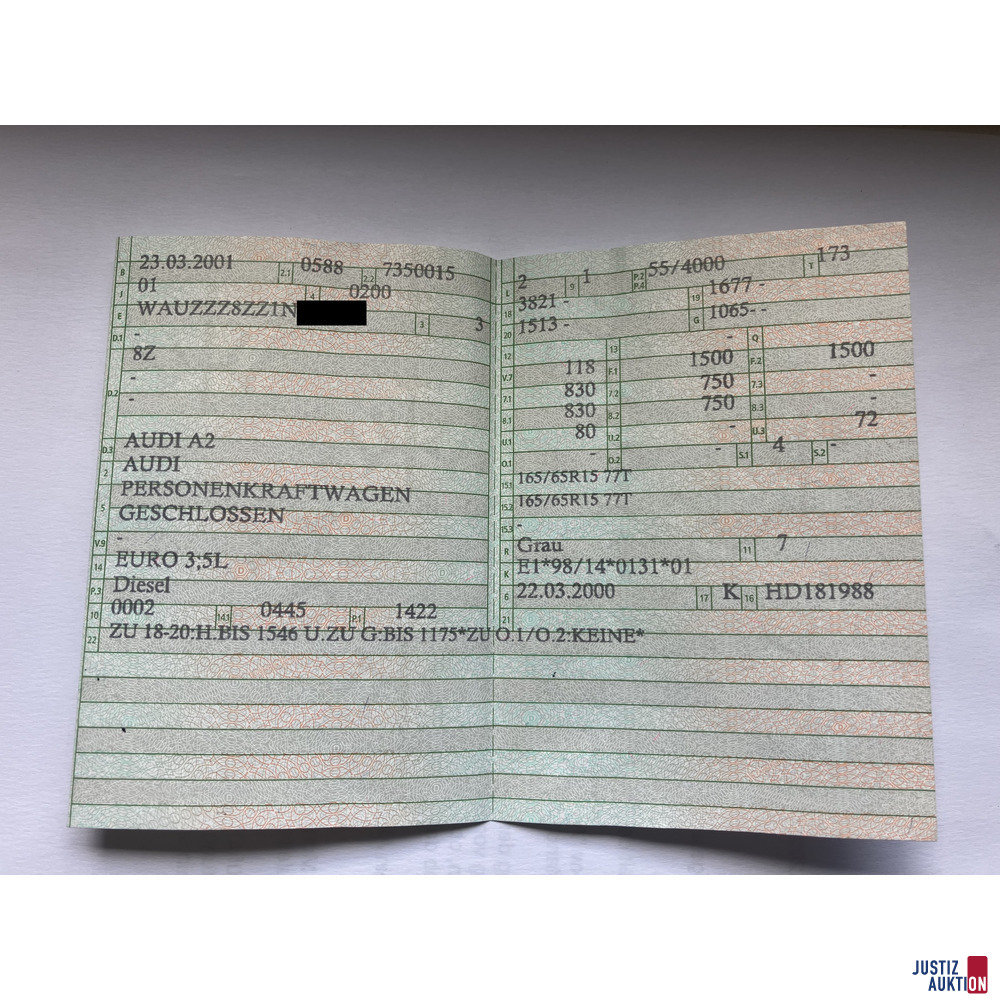 B 23.03.2001 2.1 0588 2.2 7350015
J 01 4 0200
E WAUZZZ8ZZ1N 3 3
D.1 -
8Z
-
D.2 -
D.3 AUDI A2
2 AUDI
5 PERSONENKRAFTWAGEN
GESCHLOSSEN
V.9 -
14 EURO 3;5L
P.3 Diesel
10 0002 14.1 0445 P.1 1422
22 ZU 18-20:H.BIS 1546 U.ZU G:BIS 1175*ZU O.1/O.2:KEINE*
L 2 9 1 P.2 P.4 55/4000 T 173
18 3821 - 19 1677 -
20 1513 - G 1065- -
12 13 - Q
V.7 118 F.1 1500 F.2 1500
7.1 830 7.2 750 7.3 -
8.1 830 8.2 750 8.3 -
U.1 80 U.2 - U.3 72
O.1 - O.2 - S.1 4 S.2 -
15.1 165/65R15 77T
15.2 165/65R15 77T
15.3 -
R Grau 11 7
K E1*98/14*0131*01
6 22.03.2000 17 K 16 HD181988
21
JUSTIZ
AUKTION